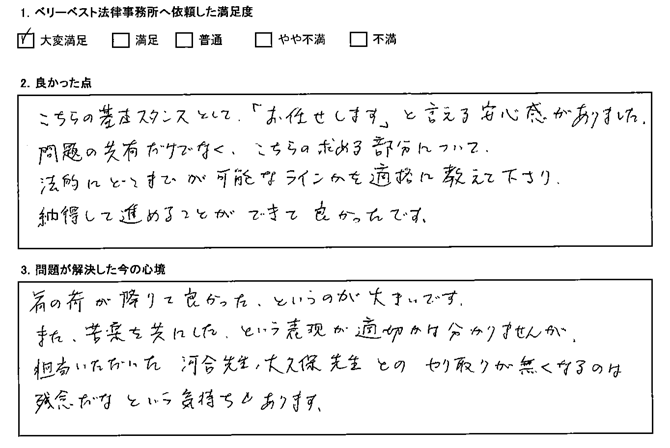 1. ベリーベスト法律事務所へ依頼した満足度
大変満足 満足 普通 やや不満 不満
2. 良かった点
こちらの基本スタンスとして、「お任せします」と言える安心感がありました。
問題の共有だけでなく、こちらの求める部分について、
法的にどこまでが可能なラインかを適格に教えて下さり、
納得して進めることができて良かったです。
3. 問題が解決した今の心境
肩の荷が降りて良かった、というのが大きいです。
また、苦楽を共にした、という表現が適切かは分かりませんが、
担当いただいた河合先生、大久保先生とのやり取りが無くなるのは
残念だなという気持ちもあります。